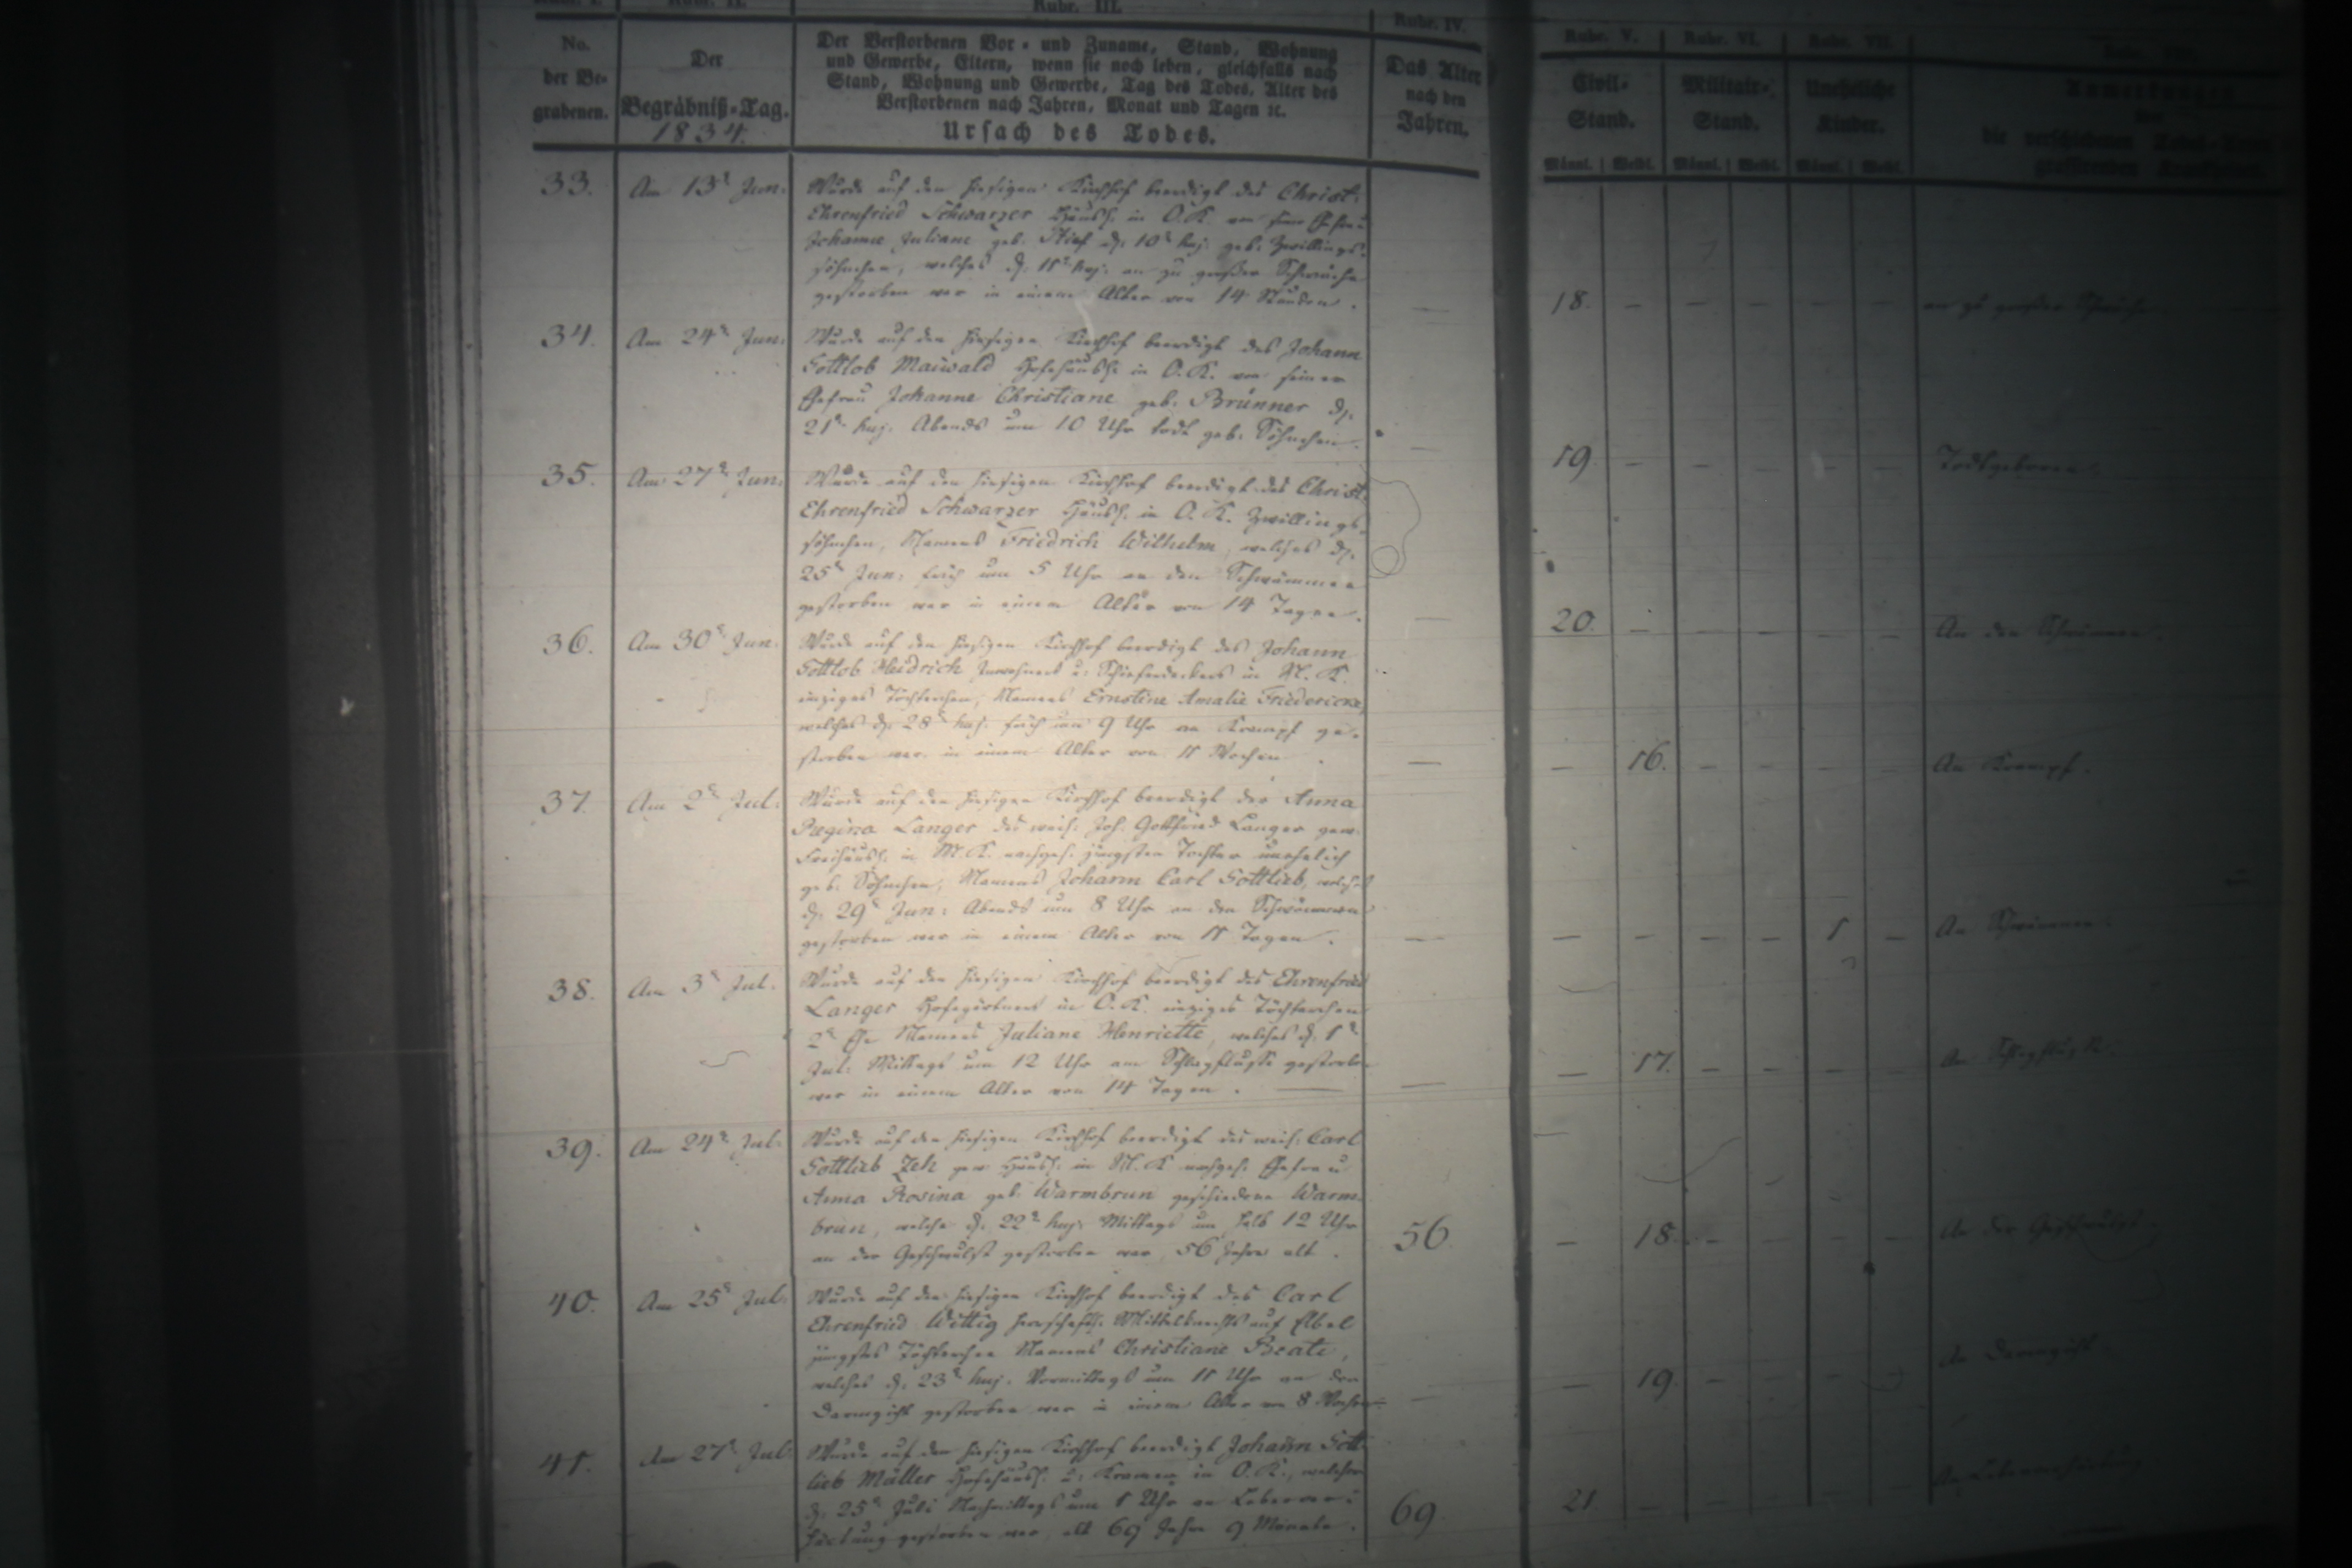 Rubr. III.
Rubr. IV.
Rubr. V.
Rubr. VI.
Rubr. VII.
No.
der Be-
grabenen.
Der
Begräbniß-Tag.
1834.
Der Verstorbenen Vor- und Zuname, Stand, Wohnung
und Gewerbe, Eltern, wenn sie noch leben, gleichfalls nach
Stand, Wohnung und Gewerbe, Tag des Todes, Alter des
Verstorbenen nach Jahren, Monat und Tagen ꝛc.
Ursach des Todes.
Das Alter
nach den
Jahren.
Civil-
Stand.
Militair-
Stand.
Uneheliche
Kinder.
Männl. Weibl. Männl. Weibl. Männl. Weibl.
Anmerkungen
die verschiedenen
33. Am 13t Jun: Wurde auf dem hiesigen Kirchhof beerdigt des Christ:
Ehrenfried Schwarzer Häusl: in O.K. von seiner Ehefrau
Johanne Juliane geb. d: 10t huj. geb: Zwillings-
söhnchen, welches d: 11t huj: an zu großer Schwäche
gestorben war in einem Alter von 14 Stunden. — 18. — — — — — an zu großer Schwäche
34. Am 24t Jun: Wurde auf dem hiesigen Kirchhof beerdigt des Johann
Gottlob Maiwald Hofehäusl: in O.K. von seiner
Ehefrau Johanne Christiane geb. Brünner d:
21t huj. Abends um 10 Uhr todt geb. Söhnchen. — 19. — — — — — Todtgeboren.
35. Am 27t Jun: Wurde auf dem hiesigen Kirchhof beerdigt des Christ:
Ehrenfried Schwarzer Häusl: in O.K. Zwillings-
söhnchen, Namens Friedrich Wilhelm, welches d:
25t Jun: früh um 5 Uhr an den Schwämmen
gestorben war in einem Alter von 14 Tagen. — 20. — — — — — An den Schwämmen.
36. Am 30t Jun: Wurde auf dem hiesigen Kirchhof beerdigt des Johann
Gottlob Heidrich Inwohners u: Schieferdeckers in N.K.
einziges Töchterchen, Namens Ernstine Amalie Friedericke,
welches d: 28t huj. früh um 9 Uhr an Krampf ge-
storben war in einem Alter von 11 Wochen. — — 16. — — — — An Krampf.
37. Am 2t Jul: Wurde auf dem hiesigen Kirchhof beerdigt der Anna
Regina Langer des weil: Joh: Gottfried Langer gew.
Freihäusl: in M.K. nachgel: jüngsten Tochter unehelich
geb. Söhnchen, Namens Johann Carl Gottlieb, welches
d: 29t Jun: Abends um 8 Uhr an den Schwämmen
gestorben war in einem Alter von 11 Tagen. — — — — — 1 — An Schwämmen.
38. Am 3t Jul. Wurde auf dem hiesigen Kirchhof beerdigt des Ehrenfried
Langer Hofegärtners in O.K. einziges Töchterchen
2t Ehe Namens Juliane Henriette, welches d: 1t
Jul: Mittags um 12 Uhr am Schlagflusse gestorben
war in einem Alter von 14 Tagen. — — 17. — — — — Am Schlagflusse.
39. Am 24t Jul: Wurde auf dem hiesigen Kirchhof beerdigt des weil: Carl
Gottlieb Zeh gew. Häusl: in N.K. nachgel: Ehefrau
Anna Rosina geb. Warmbrun geschiedene Warm-
brun, welche d: 22t huj: Mittags um halb 12 Uhr
an der Geschwulst gestorben war, 56 Jahre alt. 56. — 18. — — — — An der Geschwulst.
40. Am 25t Jul: Wurde auf dem hiesigen Kirchhof beerdigt des Carl
Ehrenfried Wittig herrschaftl: Mittelknechts auf Elbel
jüngstes Töchterchen Namens Christiane Beate,
welches d: 23t huj. Vormittags um 11 Uhr an der
Darmgicht gestorben war in einem Alter von 8 Wochen. — — 19. — — — — An Darmgicht.
41. Am 27t Jul: Wurde auf dem hiesigen Kirchhof beerdigt Johann Gott-
lieb Müller Hofehäusl: u: Kramer in O.K., welcher
d: 25t Juli Nachmittags um 1 Uhr an Leberver-
härtung gestorben war, alt 69 Jahre 9 Monate. 69 21. — — — — — An Leberverhärtung.